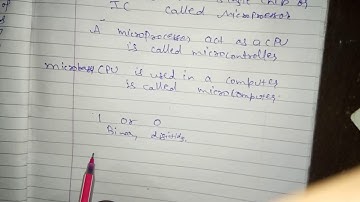 single chip of
IC called Microprocessor
A microprocessor act as a CPU
is called microcontroller
CPU is used in a computer
is called microcomputer
1 or 0
Binary digits